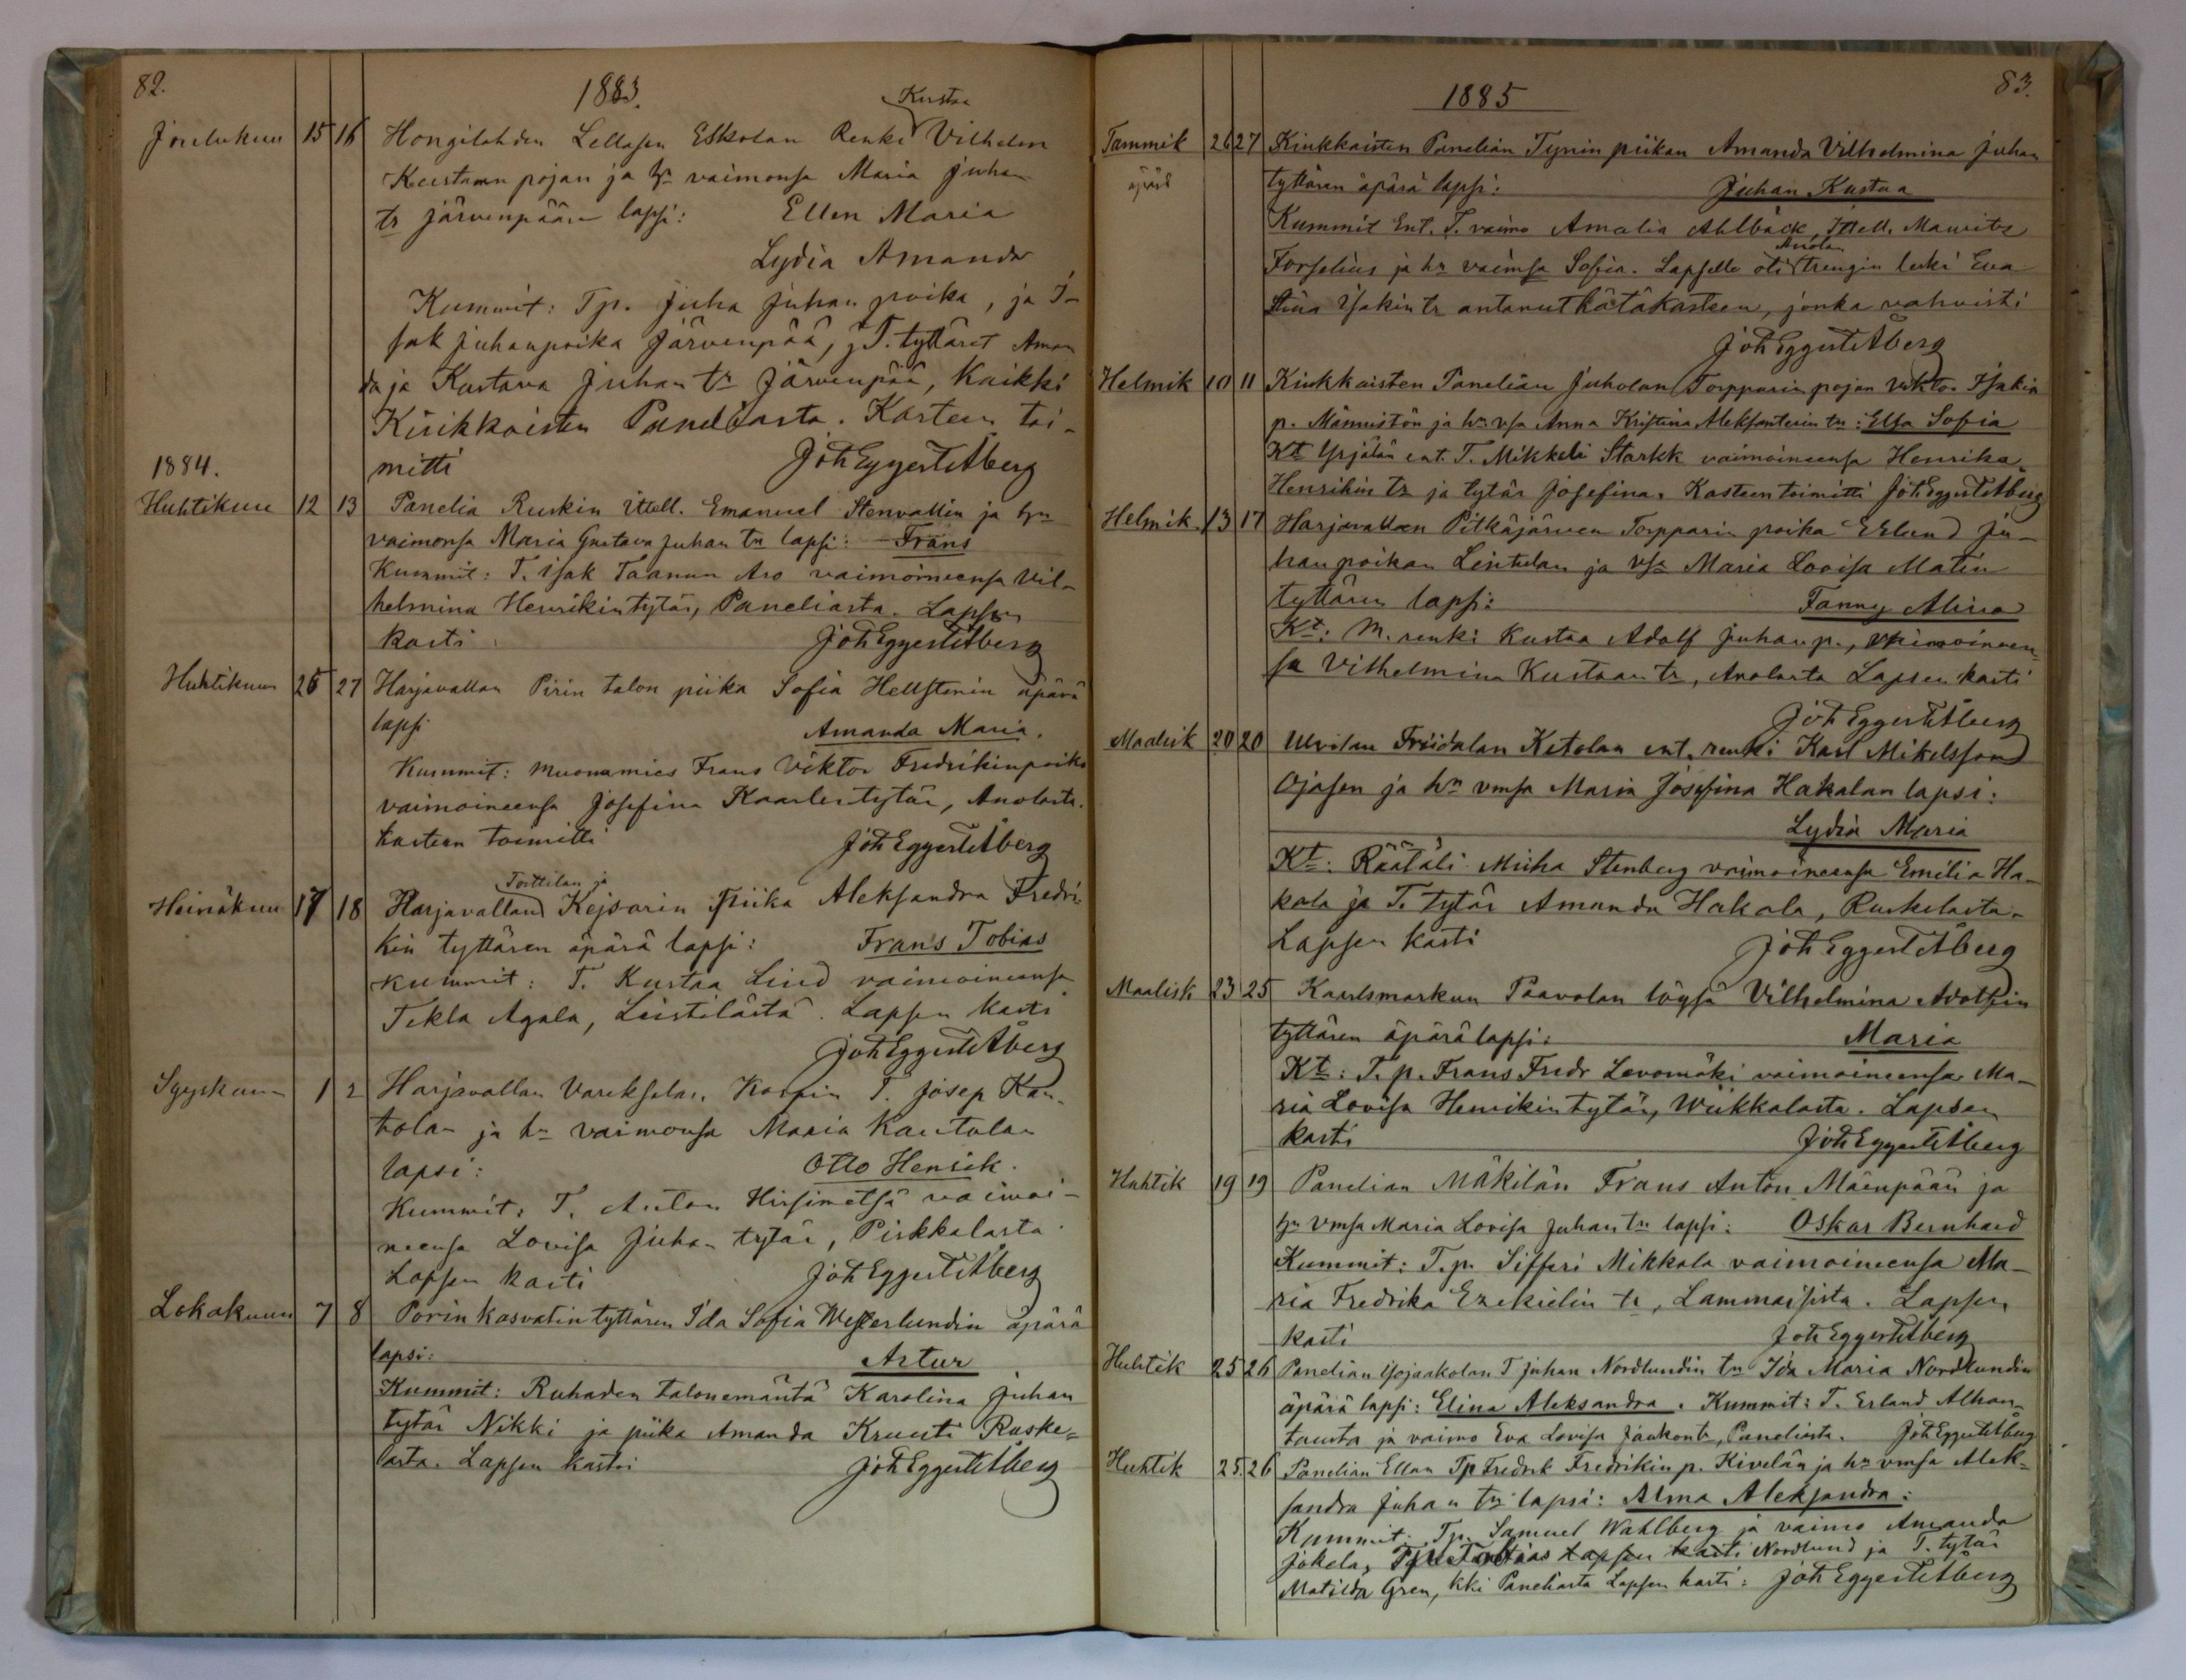 82.
1883.
Kustaa
Joulukuu 15 16 Hongilahden Lellasen Eskolan Renki Vilhelm
Kustaan pojan ja hn vaimonsa Maria Juhan
tr Järvenpään lapsi: Ellen Maria
Lydia Amanda
Kummit: Tp. Juha Juhan poika, ja I-
sak Juhanpoika Järvenpää, j T. tyttäret Aman
da ja Kustava Juhan tr Järvenpää, Kaikki
Kiukkaisten Paneliasta. Kasteen toi-
mitti Joh Eggert Åberg
1884.
Huhtikuu 12 13 Panelia Ruskin ittell. Emanuel Stenvallin ja hn
vaimonsa Maria Gustava Juhan tn lapsi: Frans
Kummit: T. Isak Taanun Aro vaimoineensa Vil-
helmina Henrikintytär, Paneliasta. Lapsen
kasti Joh Eggert Åberg
Huhtikuu 26 27 Harjavallan Pirin talon piika Sofia Hellstenin äpärä
lapsi Amanda Maria.
Kummit: Muonamies Frans Viktor Fredrikinpoika
vaimoineensa Josefina Kaarlentytär, Anolasta.
kasteen toimitti Joh Eggert Åberg
Torttilan ja
Heinäkuu 17 18 Harjavallan Kejsarin Piika Aleksandra Fredri-
kin tyttären äpärä lapsi: Frans Tobias
Kummit: T. Kustaa Lind vaimoineensa
Tekla Agala, Leistilästä. Lapsen kasti
Joh Eggert Åberg
Syyskuu 1 2 Harjavallan Vareksela, Kospin T. Josep Kan-
tolan ja hn vaimonsa Maria Kantolan
lapsi: Otto Henrik.
Kummit: T. Anton Hirsimetsä vaimoi-
neensa Lovisa Juhan tytär, Pirkkalasta
Lapsen kasti Joh Eggert Åberg
Lokakuu 7 8 Porin kasvatin tyttären Ida Sofia Westerlundin äpärä
lapsi: Artur
Kummit: Ruhaden talonemäntä Karolina Juhan
tytär Nikki ja piika Amanda Kruuti Ruske-
lasta. Lapsen kastoi Joh Eggert Åberg
83.
1885
Tammik 26 27 Kiukkaisten Panelian Tynin piikan Amanda Vilhelmina Juhan
äpärä tyttären äpärä lapsi: Juhan Kustaa
Kummit Ent. T. vaimo Amalia Ahlbäck, Ittell. Maurits
Anolan
Forselius ja hn vaimsa Sofia. Lapselle oli trengin leski Eva
Stina Isakin tr antanut hätäkasteen, jonka vahvisti
Joh Eggert Åberg
Helmik 10 11 Kiukkaisten Panelian Juholan Torpparin pojan Viktor Isakin
p. Männistön ja hn vsa Anna Kristina Aleksanterin tn: Elsa Sofia
Kt Yrjälän ent. T. Mikkeli Starkk vaimoineensa Henrika
Henrikin tr ja tytär Josefina. Kasteen toimitti Joh Eggert Åberg
Helmik. 13 17 Harjavallan Pitkäjärven Torpparin poika Erland Ju-
hanpoikan Leistulan ja vsa Maria Lovisa Matin
tyttären lapsi: Fanny Alina
Kt: M. renki Kustaa Adolf Juhanp., vaimoineen-
sa Vilhelmina Kustaan tr, Anolasta Lapsen kasti
Joh Eggert Åberg
Maalisk 20 20 Ulvilan Friidalan Ketolan ent. renki Karl Mikelsson
Ojasen ja hn vmsa Maria Josefina Hakalan lapsi:
Lydia Maria
Kt: Räätäli Miika Stenberg vaimoineensa Emilia Ha-
kala ja T. tytär Amanda Hakala, Ruskelasta.
Lapsen kasti Joh Eggert Åberg
Maalisk 23 25 Kaarlsmarkun Paavolan löysä Vilhelmina Adolfin
tyttären äpärälapsi: Maria
Kt: T. p. Frans Fredr Levomäki vaimoineensa Ma-
ria Lovisa Henrikin tytär, Wiikkalasta. Lapsen
kasti Joh Eggert Åberg
Huhtik 19 19 Panelian Mäkilän Frans Anton Mäenpään ja
hn vmsa Maria Lovisa Juhan tn lapsi: Oskar Bernhard
Kummit: T.p. Sifferi Mikkola vaimoineensa Ma-
ria Fredrika Ezekielin tr, Lammaisista. Lapsen
kasti Joh Eggert Åberg
Huhtik 25 26 Panelian Yojaakolan T Juhan Nordlundin tn Ida Maria Nordlundin
äpärä lapsi: Elina Aleksandra. Kummit: T. Erland Alhon-
tausta ja vaimo Eva Lovisa Jaakonti, Paneliasta. Joh Eggert Åberg
Huhtik 25. 26 Panelian Ellan Tp Fredrik Fredrikin p. Kivelän ja hn vmsa Alek-
sandra Juhan tn lapsi: Alma Aleksandra:
Kummit: Tp. Samuel Wahlberg ja vaimo Amanda
Jokela, Tp Tobias Lapsen kasti Nordlund ja T. tytär
Matilda Gren, kki Paneliasta Lapsen kasti: Joh Eggert Åberg